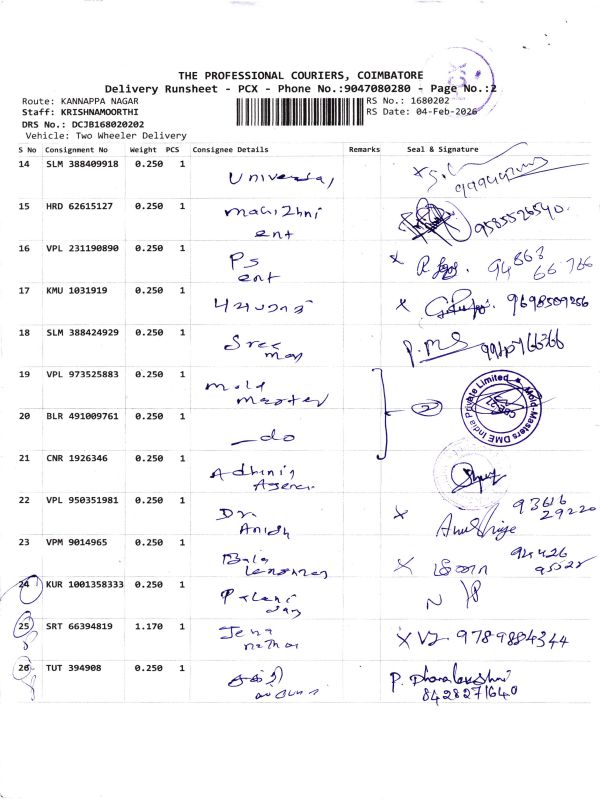 THE PROFESSIONAL COURIERS, COIMBATORE
Delivery Runsheet - PCX - Phone No.:9047080280 - Page No.:2
Route: KANNAPPA NAGAR
RS No.: 1680202
Staff: KRISHNAMOORTHI
RS Date: 04-Feb-2026
DRS No.: DCJB168020202
Vehicle: Two Wheeler Delivery
S No Consignment No Weight PCS Consignee Details Remarks Seal & Signature
14 SLM 388409918 0.250 1 Universal
15 HRD 62615127 0.250 1 Magizhni
ent 9585526540.
16 VPL 231190890 0.250 1 Ps
ent 94863
66766
17 KMU 1031919 0.250 1 X 9698509256
18 SLM 388424929 0.250 1 Sree P.MS
19 VPL 973525883 0.250 1 Mold
Master
Mold-Masters DME India Private Limited
20 BLR 491009761 0.250 1 _do 2
21 CNR 1926346 0.250 1
22 VPL 950351981 0.250 1 Dr
Anish X 93616
29220
23 VPM 9014965 0.250 1 Bala X 94426
24 KUR 1001358333 0.250 1 Palani
25 SRT 66394819 1.170 1 Jena
nathan X 9789884344
26 TUT 394908 0.250 1 சக்தி P. Dhanalakshmi
8428271640